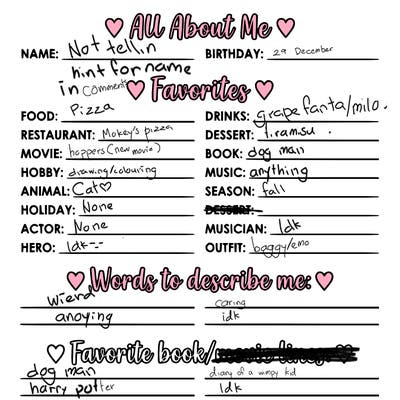 All About Me
NAME: Not tell.n BIRTHDAY: 29 December
hint for name
in comments
Favorites
FOOD: Pizza DRINKS: grape fanta/milo.
RESTAURANT: Mokey's pizza DESSERT: T.ram.su.
MOVIE: hoppers (new movie) BOOK: dog man
HOBBY: drawing/colouring MUSIC: anything
ANIMAL: Cat♡ SEASON: fall
HOLIDAY: None DESSERT:
ACTOR: None MUSICIAN: Idk
HERO: Idk -.- OUTFIT: baggy/emo
Words to describe me:
wierd caring
anoying idk
Favorite book/
dog man diary of a wimpy kid
harry potter Idk